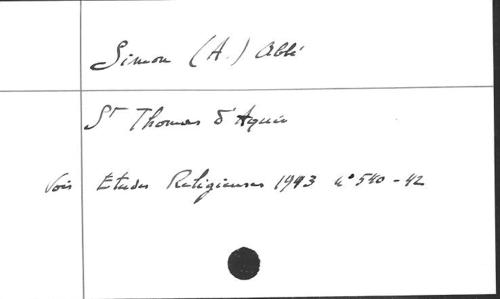 Simon (A.) Abbé
St Thomas d'Aquin
Voir Etudes Religieuses 1943 n° 540-42